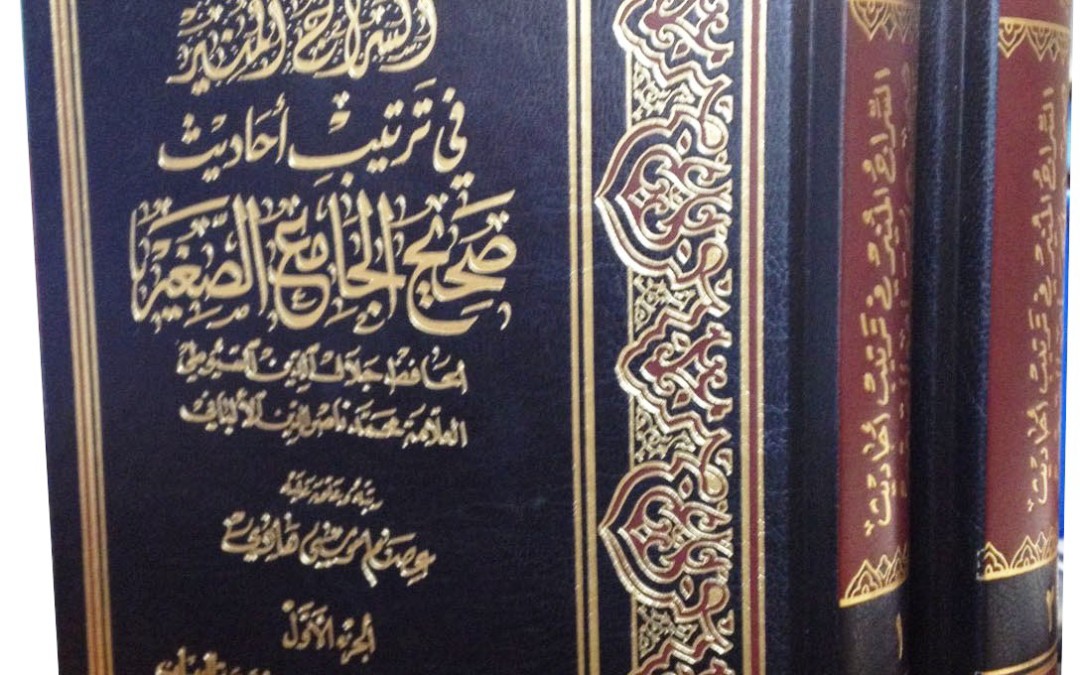 السراج المنير
في ترتيب أحاديث
صحيح الجامع الصغير
الحافظ جلال الدين السيوطي
العلامة محمد ناصر الدين الألباني
رتبه وعلق عليه
عصام موسى هادي
الجزء الأول
السراج المنير في ترتيب أحاديث
١
السراج المنير في ترتيب أحاديث
٢